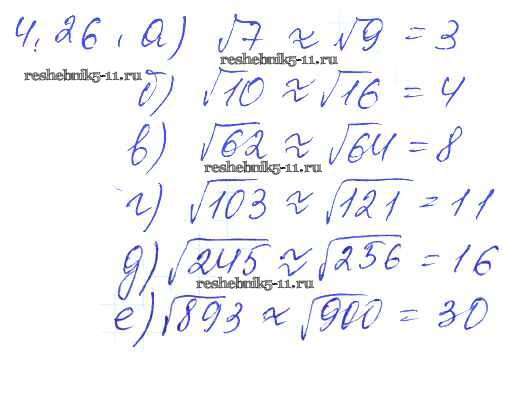 4.26. а) √7 ≈ √9 = 3
reshebnik5-11.ru
reshebnik5-11.ru
б) √10 ≈ √16 = 4
в) √62 ≈ √64 = 8
reshebnik5-11.ru
г) √103 ≈ √121 = 11
д) √245 ≈ √256 = 16
reshebnik5-11.ru
е) √893 ≈ √900 = 30